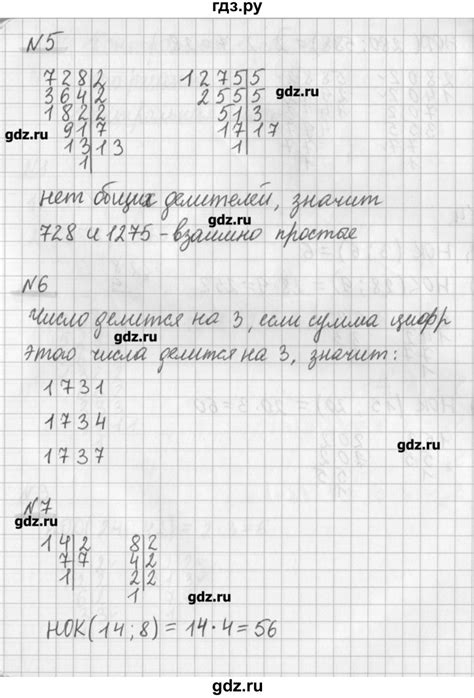 гдз.ру
№5
728|2 1275|5
364|2 255|5
182|2 51|3
91|7 17|17
13|13 1|
1|
нет общих делителей, значит
728 и 1275 - взаимно простые
№6
Число делится на 3, если сумма цифр
этого числа делится на 3, значит:
1731
1734
1737
№7
14|2 8|2
7|7 4|2
1| 2|2
1|
НОК(14; 8) = 14·4 = 56
gdz.ru
gdz.ru
gdz.ru
gdz.ru
gdz.ru
gdz.ru
gdz.ru
gdz.ru
gdz.ru